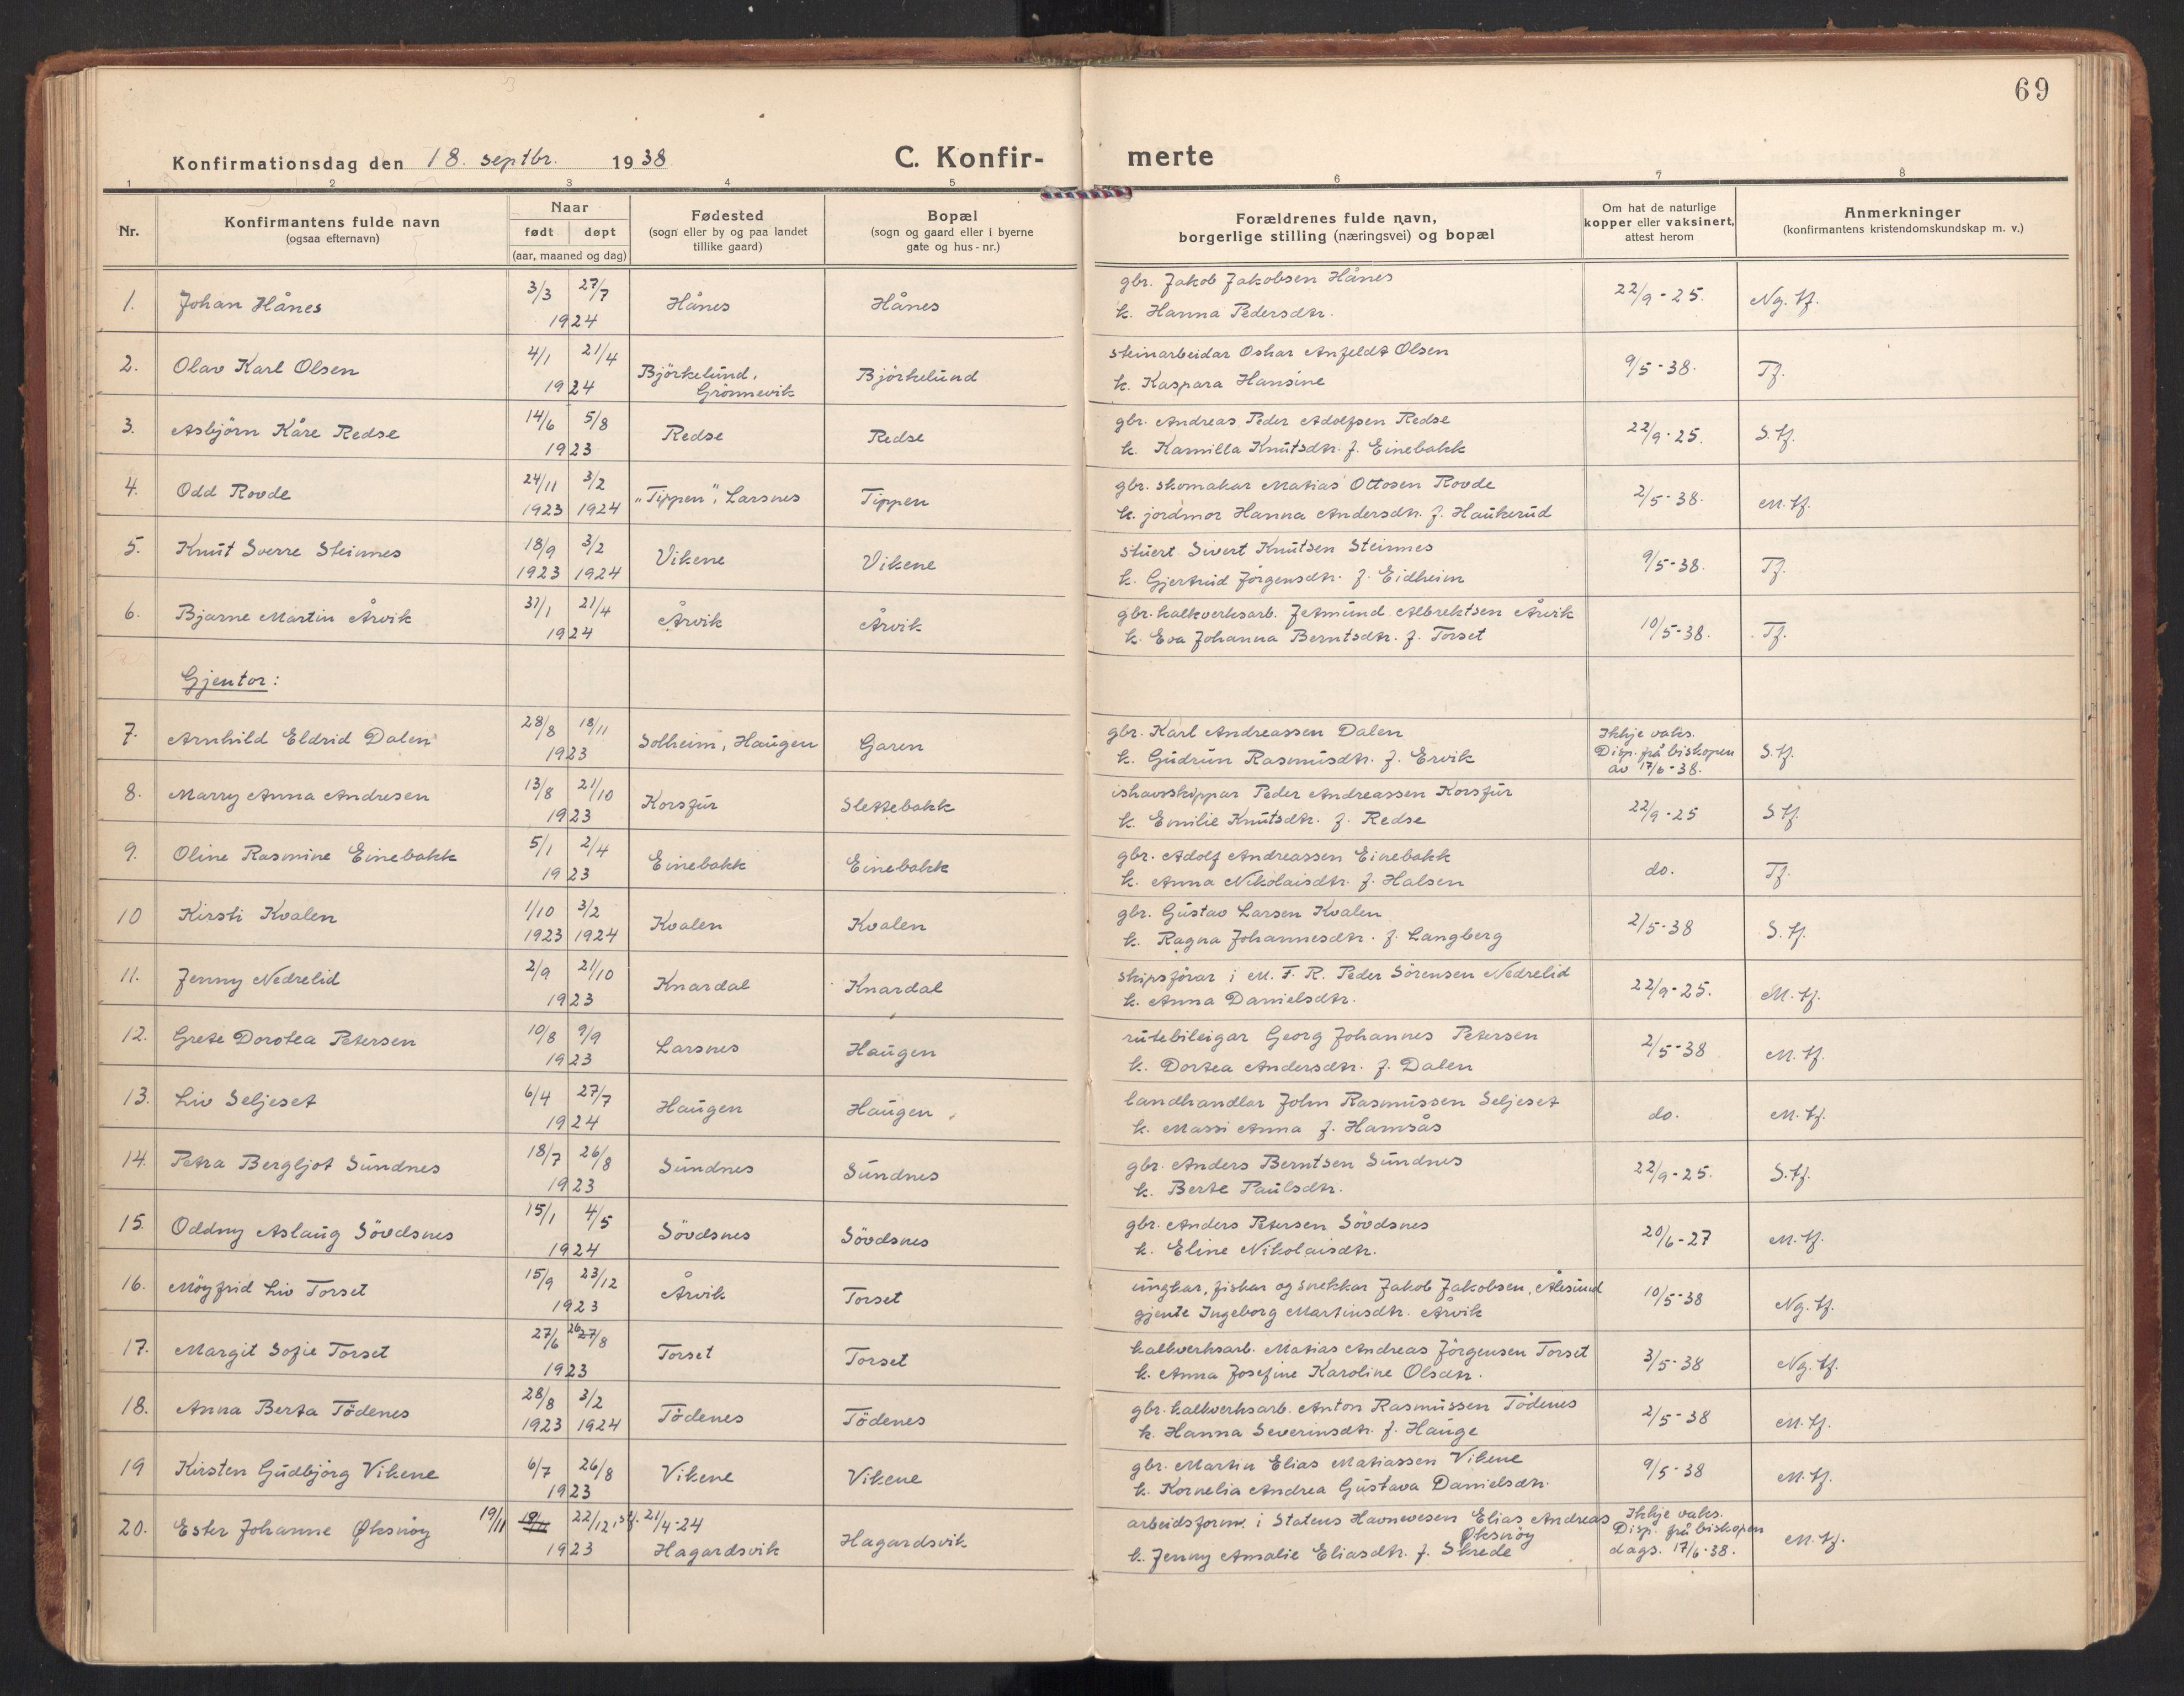 69
Konfirmationsdag den 18. septbr. 1938 C. Konfir- merte
1 2 3 4 5 6 7 8
Nr.
Konfirmantens fulde navn
(ogsaa efternavn)
Naar
født døpt
(aar, maaned og dag)
Fødested
(sogn eller by og paa landet
tillike gaard)
Bopæl
(sogn og gaard eller i byerne
gate og hus - nr.)
Forældrenes fulde navn,
borgerlige stilling (næringsvei) og bopæl
Om hat de naturlige
kopper eller vaksinert,
attest herom
Anmerkninger
(konfirmantens kristendomskundskap m. v.)
1. Johan Hånes 3/3 27/7 1924 Hånes Hånes
gbr. Jakob Jakobsen Hånes
k. Hanna Pedersdtr.
22/9-25. Ng. tf.
2. Olav Karl Olsen 4/1 21/4 1924 Björkelund, Grönnevik Björkelund
steinarbeidar Oskar Anfeldt Olsen
k. Kaspara Hansine
9/5-38. Tf.
3. Asbjörn Kåre Redse 14/6 5/8 1923 Redse Redse
gbr. Andreas Peder Adolfsen Redse
k. Kamilla Knutsdtr. f. Einebakk
22/9-25. S. tf.
4. Odd Rovde 24/11 1923 3/2 1924 "Tippen", Larsnes Tippen
gbr. skomakar Matias Ottosen Rovde
k. jordmor Hanna Andersdtr. f. Haukerud
2/5-38. M. tf.
5. Knut Sverre Steinnes 18/9 1923 3/2 1924 Vikene Vikene
stuert Sivert Knutsen Steinnes
k. Gjertrud Jörgensdtr. f. Eidheim
9/5-38. Tf.
6. Bjarne Martin Årvik 31/1 21/4 1924 Årvik Årvik
gbr. kalkverksarb. Jetmund Albrektsen Årvik
k. Eva Johanna Berntsdtr. f. Torset
10/5-38. Tf.
Gjentor:
7. Arnhild Eldrid Dalen 28/8 18/11 1923 Solheim, Haugen Garen
gbr. Karl Andreassen Dalen
k. Gudrun Rasmusdtr. f. Ervik
Ikkje vaks.
Disp. frå biskopen
av 17/6-38.
S. tf.
8. Marry Anna Andresen 13/8 21/10 1923 Korsfur Slettebakk
ishavsskippar Peder Andreassen Korsfur
k. Emilie Knutsdtr. f. Redse
22/9-25 S tf.
9. Oline Rasmine Einebakk 5/1 2/4 1923 Einebakk Einebakk
gbr. Adolf Andreassen Einebakk
k. Anna Nikolaisdtr. f. Halsen
do. Tf.
10 Kirsti Kvalen 1/10 1923 3/2 1924 Kvalen Kvalen
gbr. Gustav Larsen Kvalen
k. Ragna Johannesdtr. f. Langberg
2/5-38 S. tf.
11. Jenny Nedrelid 2/9 21/10 1923 Knardal Knardal
skipsförar i M. F. R. Peder Sörensen Nedrelid
k. Anna Danielsdtr.
22/9-25. M. tf.
12. Grete Dorotea Petersen 10/8 9/9 1923 Larsnes Haugen
rutebileigar Georg Johannes Petersen
k. Dortea Andersdtr. f. Dalen
2/5-38 M. tf.
13. Liv Seljeset 6/4 27/7 1924 Haugen Haugen
landhandlar John Rasmussen Seljeset
k. Massi Anna f. Hamsås
do. M. tf.
14. Petra Bergljot Sundnes 18/7 26/8 1923 Sundnes Sundnes
gbr. Anders Berntsen Sundnes
k. Berte Paulsdtr.
22/9-25. S. tf.
15. Oddny Aslaug Sövdsnes 15/1 4/5 1924 Sövdsnes Sövdsnes
gbr. Anders Petersen Sövdsnes
k. Eline Nikolaisdtr.
20/6-27 M. tf.
16. Möyfrid Liv Torset 15/9 23/12 1923 Årvik Torset
ungkar, fiskar og snekkar Jakob Jakobsen, Ålesund
gjente Ingeborg Martinsdtr. Årvik
10/5-38 Ng. tf.
17. Margit Sofie Torset 27/6 26 27/8 1923 Torset Torset
kalkverksarb. Matias Andreas Jörgensen Torset
k. Anna Josefine Karoline Olsdtr.
3/5-38 Ng. tf.
18. Anna Berta Tödenes 28/8 1923 3/2 1924 Tödenes Tödenes
gbr. kalkverksarb. Anton Rasmussen Tödenes
k. Hanna Severinsdtr. f. Hauge
2/5-38 M. tf.
19 Kirsten Gudbjörg Vikene 6/7 26/8 1923 Vikene Vikene
gbr. Martin Elias Matiassen Vikene
k. Kornelia Andrea Gustava Danielsdtr.
9/5-38 M. tf.
20. Ester Johanne Øksnöy 19/11 22/12, stf. 21/4-24 1923 Hagardsvik Hagardsvik
arbeidsform. i Statens Havnevesen Elias Andreas Øksnöy
k. Jenny Amalie Eliasdtr. f. Skrede
Ikkje vaks.
Disp. frå biskopen
dags. 17/6-38.
M. tf.